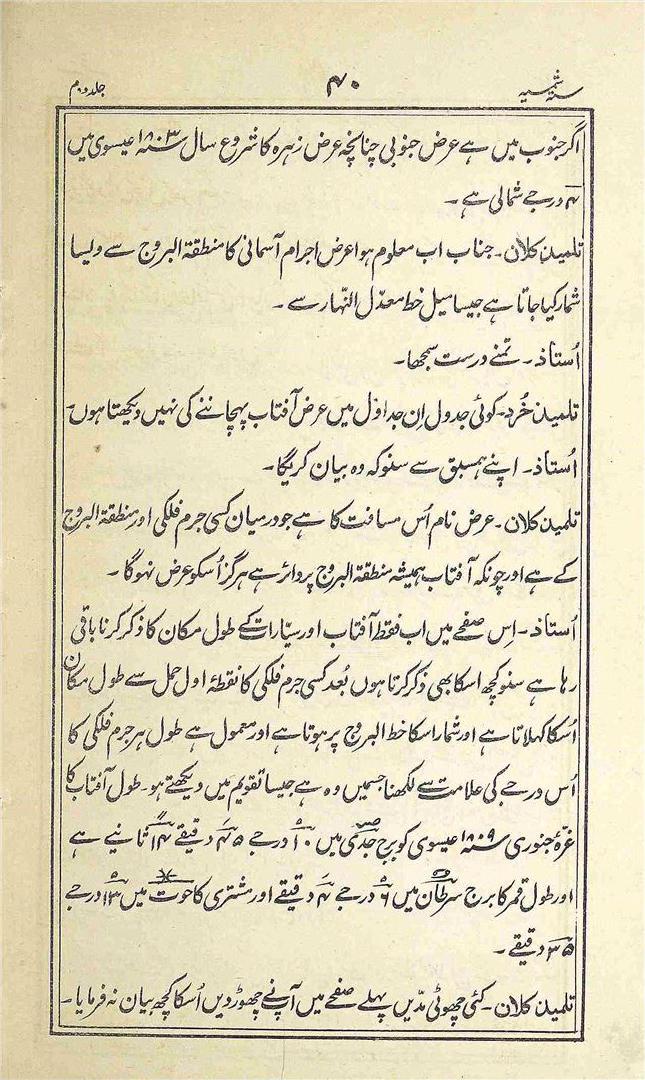 ستہ شمسیہ ۴۰ جلد دوم
اگر جنوب میں ہے عرض جنوبی چنانچہ عرض زہرہ کا شروع سال ۱۸۰۳ عیسوی میں
۴ درجے شمالی ہے ۔
تلمیذ کلان ۔ جناب اب معلوم ہوا عرض اجرام آسمانی کا منطقۃ البروج سے ویسا
شمار کیا جاتا ہے جیسا میل خط معدّل النہار سے ۔
اُستاذ ۔ تمنے درست سمجھا ۔
تلمیذ خُرد ۔ کوئی جدول اِن جداول میں عرض آفتاب پہچاننے کی نہیں دیکھتا ہوں ۔
اُستاذ ۔ اپنے ہمسبق سے سنو کہ وہ بیان کریگا ۔
تلمیذ کلان ۔ عرض نام اُس مسافت کا ہے جو درمیان کسی جرم فلکی اور منطقۃ البروج
کے ہے اور چونکہ آفتاب ہمیشہ منطقۃ البروج پر دائر ہے ہرگز اُسکو عرض نہوگا ۔
اُستاذ ۔ اِس صفحے میں اب فقط آفتاب اور سیّارات کے طول مکان کا ذکر کرنا باقی
رہا ہے سنو کچھ اسکا بھی ذکر کرتا ہوں بُعد کسی جرم فلکی کا نقطۂ اول حمل سے طول مکان
اُسکا کہلاتا ہے اور شمار اسکا خط البروج پر ہوتا ہے اور معمول ہے طول ہر جرم فلکی کا
اُس درجے کی علامت سے لکھنا جسمیں وہ ہے جیسا تقویم میں دیکھتے ہو ۔ طول آفتاب کا
غرّۂ جنوری ۱۸۰۹ عیسوی کو برج جدی میں ۱۰ درجے ۴۵ دقیقے ۱۴ ثانیے ہے
اور طول قمر کا برج سرطان میں ۶ درجے ۴ دقیقے اور مشتری کا حوت میں ۱۳ درجے
۳۵ دقیقے ۔
تلمیذ کلان ۔ کئی چھوٹی مدّیں پہلے صفحے میں آپ نے چھوڑ دیں اُسکا کچھ بیان نہ فرمایا ۔